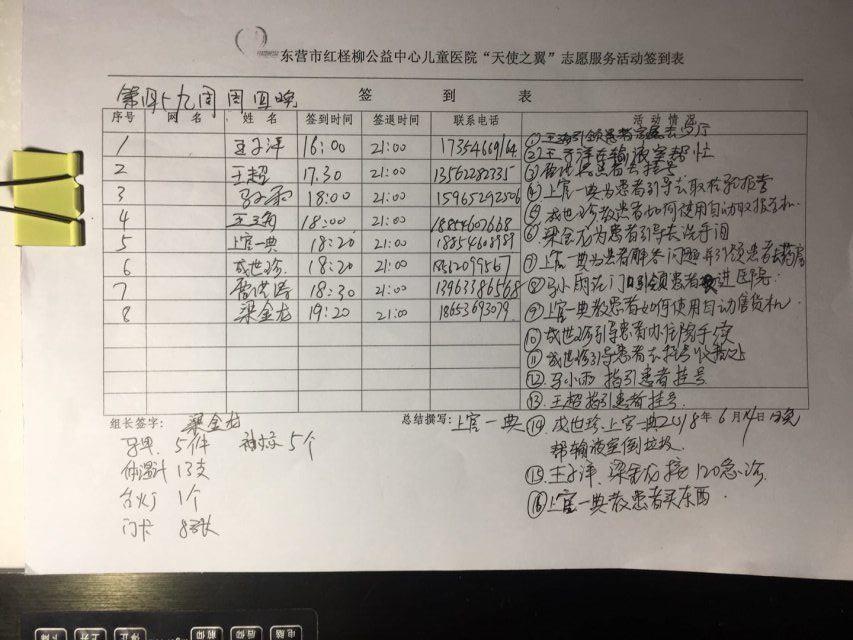 东营市红柽柳公益中心儿童医院“天使之翼”志愿服务活动签到表
第四十九周 周四晚
签 到 表
序号 网 名 姓 名 签到时间 签退时间 联系电话 活 动 情 况
1 王子洋 16:00 21:00
2 王超 17:30 21:00 13562282235
3 马小雨 18:00 21:00 15965292506
4 18:00 21:00 18854607668
5 上官一典 18:20 21:00 18854608989
6 成世珍 18:20 21:00
7 18:30 21:00 13963386568
8 梁金龙 19:20 21:00 18653693079
① 引领患者去
②王子洋在输液室帮忙
③ 患者去挂号
④上官一典为患者引导去取报告
⑤成世珍教患者如何使用自动取报告机
⑥梁金龙为患者引导去洗手间
⑦上官一典为患者解答问题并引领患者去药房
⑧马小雨在门口引领患者进医院
⑨上官一典教患者如何使用自动售货机
⑩成世珍引导患者办住院手续
⑪成世珍引导患者去挂号收款处
⑫马小雨指引患者挂号
⑬王超指引患者挂号
⑭成世珍、上官一典2018年6月14日晚
帮输液室倒垃圾
⑮王子洋、梁金龙接120急诊
⑯上官一典教患者买东西
组长签字: 梁金龙 总结撰写: 上官一典
马甲 5件 5个
体温计 13支
台灯 1个
门卡 8张